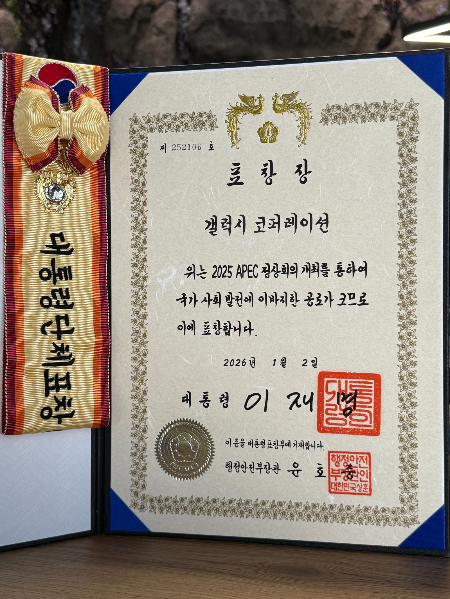 대통령단체표창
제 252106 호
표창장
갤럭시 코퍼레이션
위는 2025 APEC 정상회의 개최를 통하여
국가 사회 발전에 이바지한 공로가 크므로
이에 표창합니다.
2026년 1월 2일
대통령 이재명
대통
령인
이 증을 대통령표창부에 기재합니다.
행정안전부장관 윤호중
행정안전
부장관인
대한민국상훈